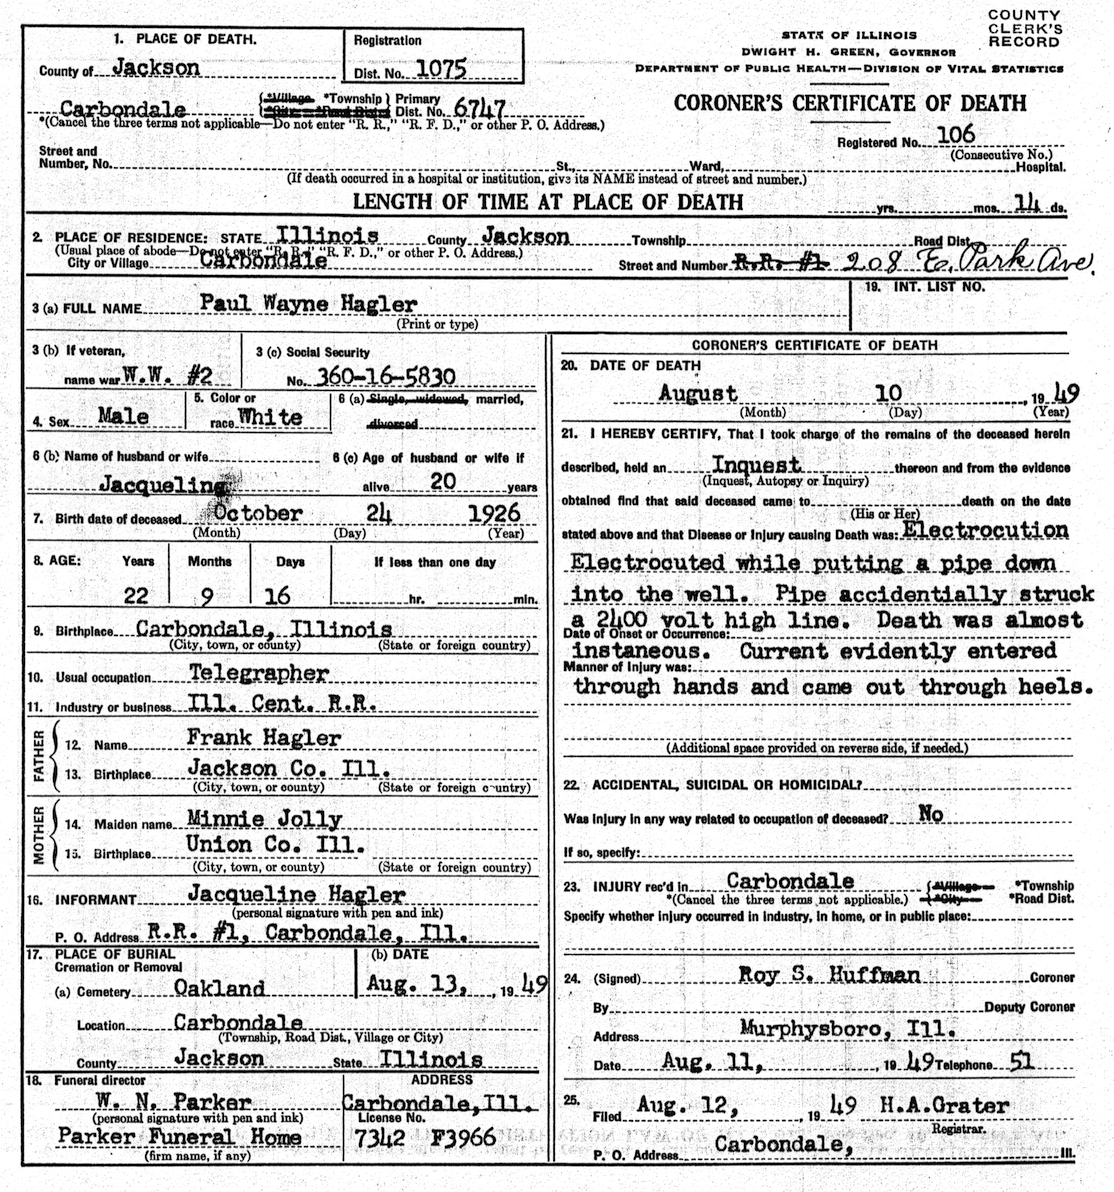 COUNTY
CLERK'S
RECORD
STATE OF ILLINOIS
DWIGHT H. GREEN, GOVERNOR
DEPARTMENT OF PUBLIC HEALTH—DIVISION OF VITAL STATISTICS
CORONER'S CERTIFICATE OF DEATH
Registered No. 106
(Consecutive No.)
1. PLACE OF DEATH.
County of Jackson
Registration
Dist. No. 1075
Carbondale {*Village *Township} Primary
*City *Road Dist. Dist. No. 6747
*(Cancel the three terms not applicable—Do not enter "R. R.," "R. F. D.," or other P. O. Address.)
Street and
Number, No. St., Ward, Hospital.
(If death occurred in a hospital or institution, give its NAME instead of street and number.)
LENGTH OF TIME AT PLACE OF DEATH yrs. mos. 14 ds.
2. PLACE OF RESIDENCE: STATE Illinois County Jackson Township Road Dist.
(Usual place of abode—Do not enter "R. R.," "R. F. D.," or other P. O. Address.)
City or Village Carbondale Street and Number R.R. #1 208 E. Park Ave.
3 (a) FULL NAME Paul Wayne Hagler
(Print or type)
19. INT. LIST NO.
3 (b) If veteran,
name war W.W. #2
3 (c) Social Security
No. 360-16-5830
4. Sex Male
5. Color or
race White
6 (a) Single, widowed, married,
divorced
6 (b) Name of husband or wife
Jacqueline
6 (c) Age of husband or wife if
alive 20 years
7. Birth date of deceased October 24 1926
(Month) (Day) (Year)
8. AGE: Years Months Days If less than one day
22 9 16 hr. min.
9. Birthplace Carbondale, Illinois
(City, town, or county) (State or foreign country)
10. Usual occupation Telegrapher
11. Industry or business Ill. Cent. R.R.
FATHER
12. Name Frank Hagler
13. Birthplace Jackson Co. Ill.
(City, town, or county) (State or foreign country)
MOTHER
14. Maiden name Minnie Jolly
15. Birthplace Union Co. Ill.
(City, town, or county) (State or foreign country)
16. INFORMANT Jacqueline Hagler
(personal signature with pen and ink)
P. O. Address R.R. #1, Carbondale, Ill.
17. PLACE OF BURIAL
Cremation or Removal
(b) DATE
(a) Cemetery Oakland Aug. 13, 19 49
Location Carbondale
(Township, Road Dist., Village or City)
County Jackson State Illinois
18. Funeral director ADDRESS
W. N. Parker Carbondale, Ill.
(personal signature with pen and ink) License No.
Parker Funeral Home 7342 F3966
(firm name, if any)
CORONER'S CERTIFICATE OF DEATH
20. DATE OF DEATH
August 10 , 19 49
(Month) (Day) (Year)
21. I HEREBY CERTIFY, That I took charge of the remains of the deceased herein
described, held an Inquest thereon and from the evidence
(Inquest, Autopsy or Inquiry)
obtained find that said deceased came to death on the date
(His or Her)
stated above and that Disease or Injury causing Death was: Electrocution
Electrocuted while putting a pipe down
into the well. Pipe accidentially struck
a 2400 volt high line. Death was almost
Date of Onset or Occurrence:
instaneous. Current evidently entered
Manner of Injury was:
through hands and came out through heels.
(Additional space provided on reverse side, if needed.)
22. ACCIDENTAL, SUICIDAL OR HOMICIDAL?
Was injury in any way related to occupation of deceased? No
If so, specify:
23. INJURY rec'd in Carbondale {*Village *Township
*(Cancel the three terms not applicable.) *City *Road Dist.
Specify whether injury occurred in industry, in home, or in public place:
24. (Signed) Roy S. Huffman Coroner
By Deputy Coroner
Address Murphysboro, Ill.
Date Aug. 11, , 19 49 Telephone 51
25. Filed Aug. 12, , 19 49 H.A.Grater
Registrar.
P. O. Address Carbondale, Ill.